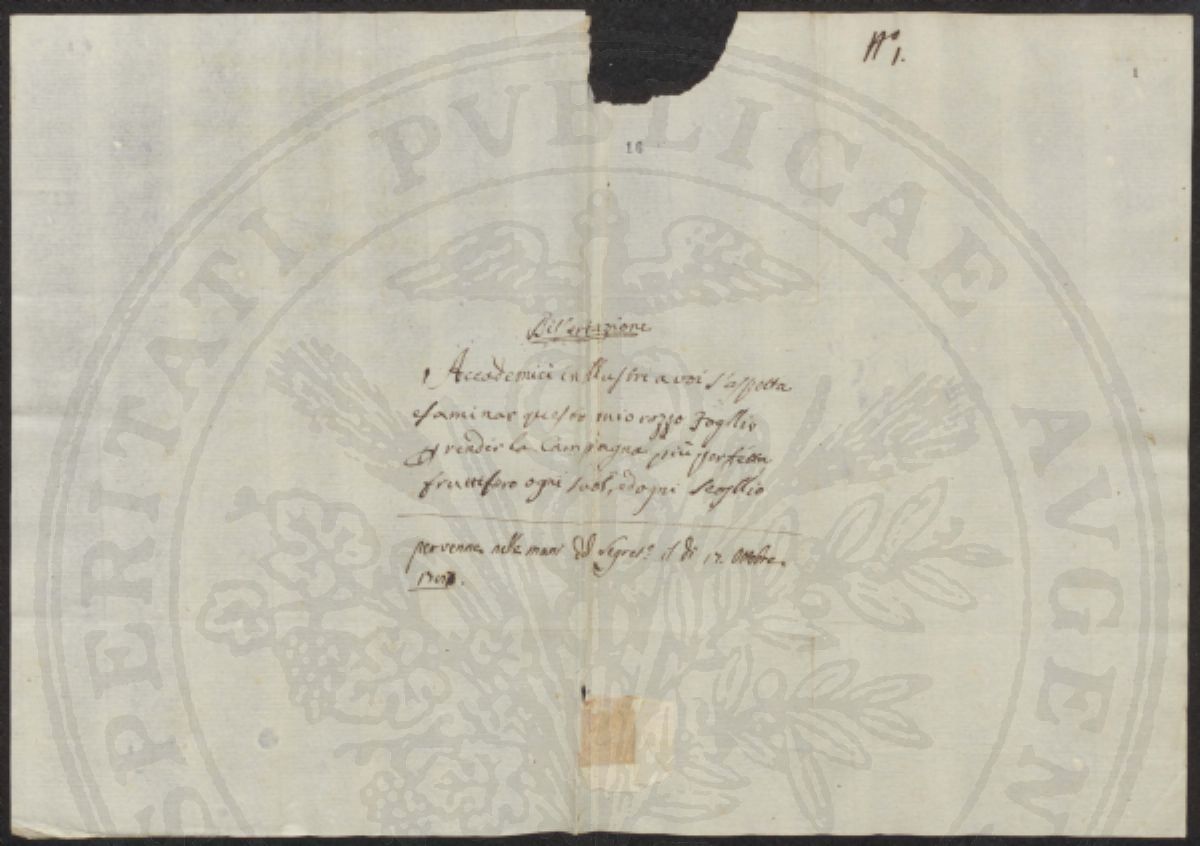 N.° 1.
1
16
PROSPERITATI PVBLICAE AVGEN
Dissertazione
Accademici inllustri a voi s'aspetta
esaminar questo mio rozzo Fogllio
render la Campagna più perfetta
fruttifero ogni suol, ed ogni scogllio
pervenne nelle mani del Segret.° il dì 17. Ottobre